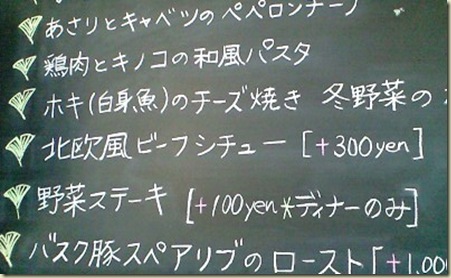 あさりとキャベツのペペロンチーノ
鶏肉とキノコの和風パスタ
ホキ(白身魚)のチーズ焼き 冬野菜の
北欧風ビーフシチュー [+300yen]
野菜ステーキ [+100yen*ディナーのみ]
バスク豚スペアリブのロースト [+1.00